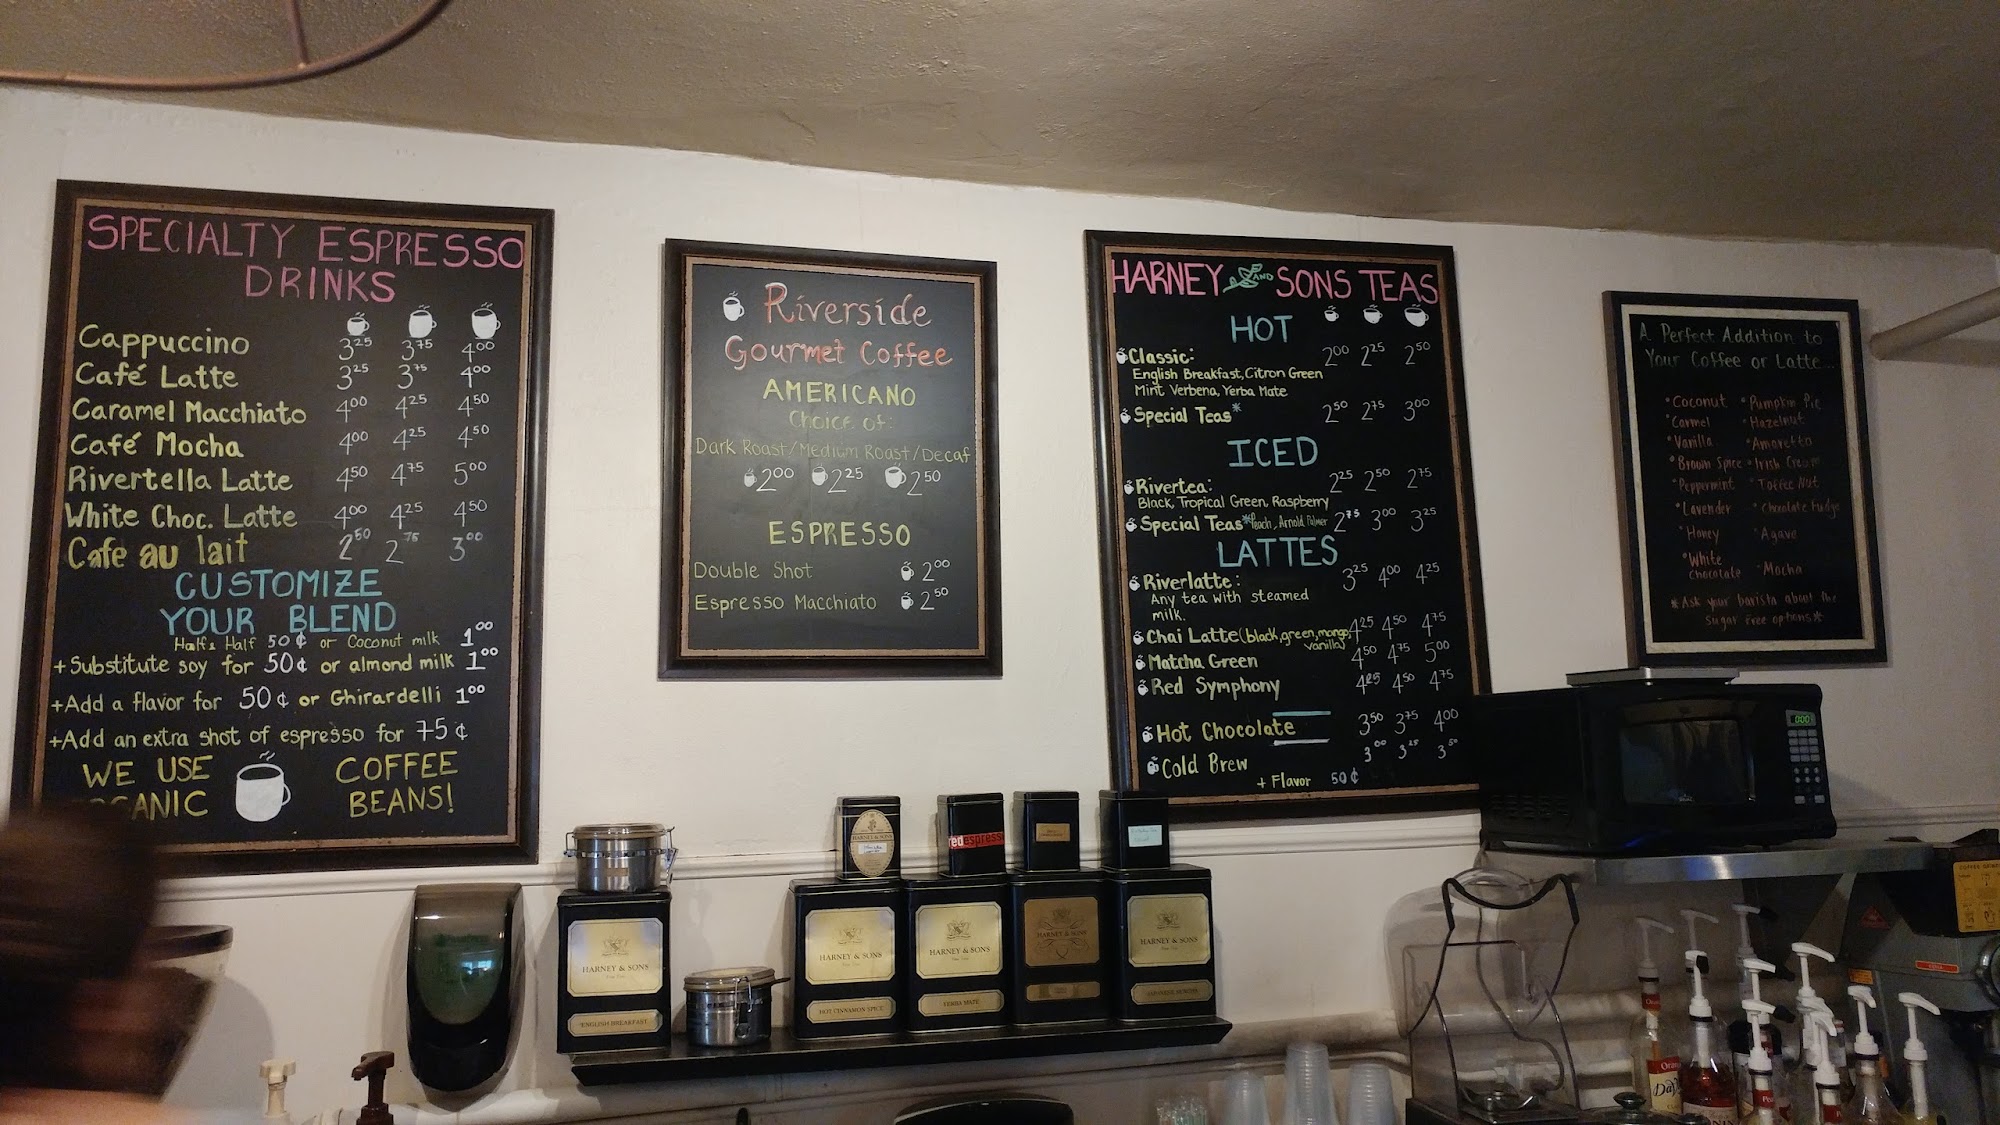 SPECIALTY ESPRESSO
DRINKS
Cappuccino 3²⁵ 3⁷⁵ 4⁰⁰
Café Latte 3²⁵ 3⁷⁵ 4⁰⁰
Caramel Macchiato 4⁰⁰ 4²⁵ 4⁵⁰
Café Mocha 4⁰⁰ 4²⁵ 4⁵⁰
Rivertella Latte 4⁵⁰ 4⁷⁵ 5⁰⁰
White Choc. Latte 4⁰⁰ 4²⁵ 4⁵⁰
Cafe au lait 2⁵⁰ 2⁷⁵ 3⁰⁰
CUSTOMIZE
YOUR BLEND
Half & Half 50¢ or Coconut milk 1⁰⁰
+Substitute soy for 50¢ or almond milk 1⁰⁰
+Add a flavor for 50¢ or Ghirardelli 1⁰⁰
+Add an extra shot of espresso for 75¢
WE USE COFFEE
ORGANIC BEANS!
Riverside
Gourmet Coffee
AMERICANO
Choice of:
Dark Roast/Medium Roast/Decaf
2⁰⁰ 2²⁵ 2⁵⁰
ESPRESSO
Double Shot 2⁰⁰
Espresso Macchiato 2⁵⁰
HARNEY AND SONS TEAS
HOT
Classic: 2⁰⁰ 2²⁵ 2⁵⁰
English Breakfast, Citron Green
Mint Verbena, Yerba Mate
Special Teas* 2⁵⁰ 2⁷⁵ 3⁰⁰
ICED
Rivertea: 2²⁵ 2⁵⁰ 2⁷⁵
Black, Tropical Green, Raspberry
Special Teas* Peach, Arnold Palmer 2⁷⁵ 3⁰⁰ 3²⁵
LATTES
Riverlatte: 3²⁵ 4⁰⁰ 4²⁵
Any tea with steamed
milk.
Chai Latte (black, green, mango, 4²⁵ 4⁵⁰ 4⁷⁵
vanilla)
Matcha Green 4⁵⁰ 4⁷⁵ 5⁰⁰
Red Symphony 4²⁵ 4⁵⁰ 4⁷⁵
Hot Chocolate 3⁵⁰ 3⁷⁵ 4⁰⁰
Cold Brew 3⁰⁰ 3²⁵ 3⁵⁰
+ Flavor 50¢
A Perfect Addition to
Your Coffee or Latte...
*Coconut *Pumpkin Pie
*Carmel *Hazelnut
*Vanilla *Amaretto
*Brown Spice *Irish Cream
*Peppermint *Toffee Nut
*Lavender *Chocolate Fudge
*Honey *Agave
*White
Chocolate *Mocha
*Ask your barista about the
sugar free options*
0:00
HARNEY & SONS
redespresso
HARNEY & SONS
ENGLISH BREAKFAST
HARNEY & SONS
HOT CINNAMON SPICE
HARNEY & SONS
YERBA MATE
HARNEY & SONS
HARNEY & SONS
JAPANESE SENCHA